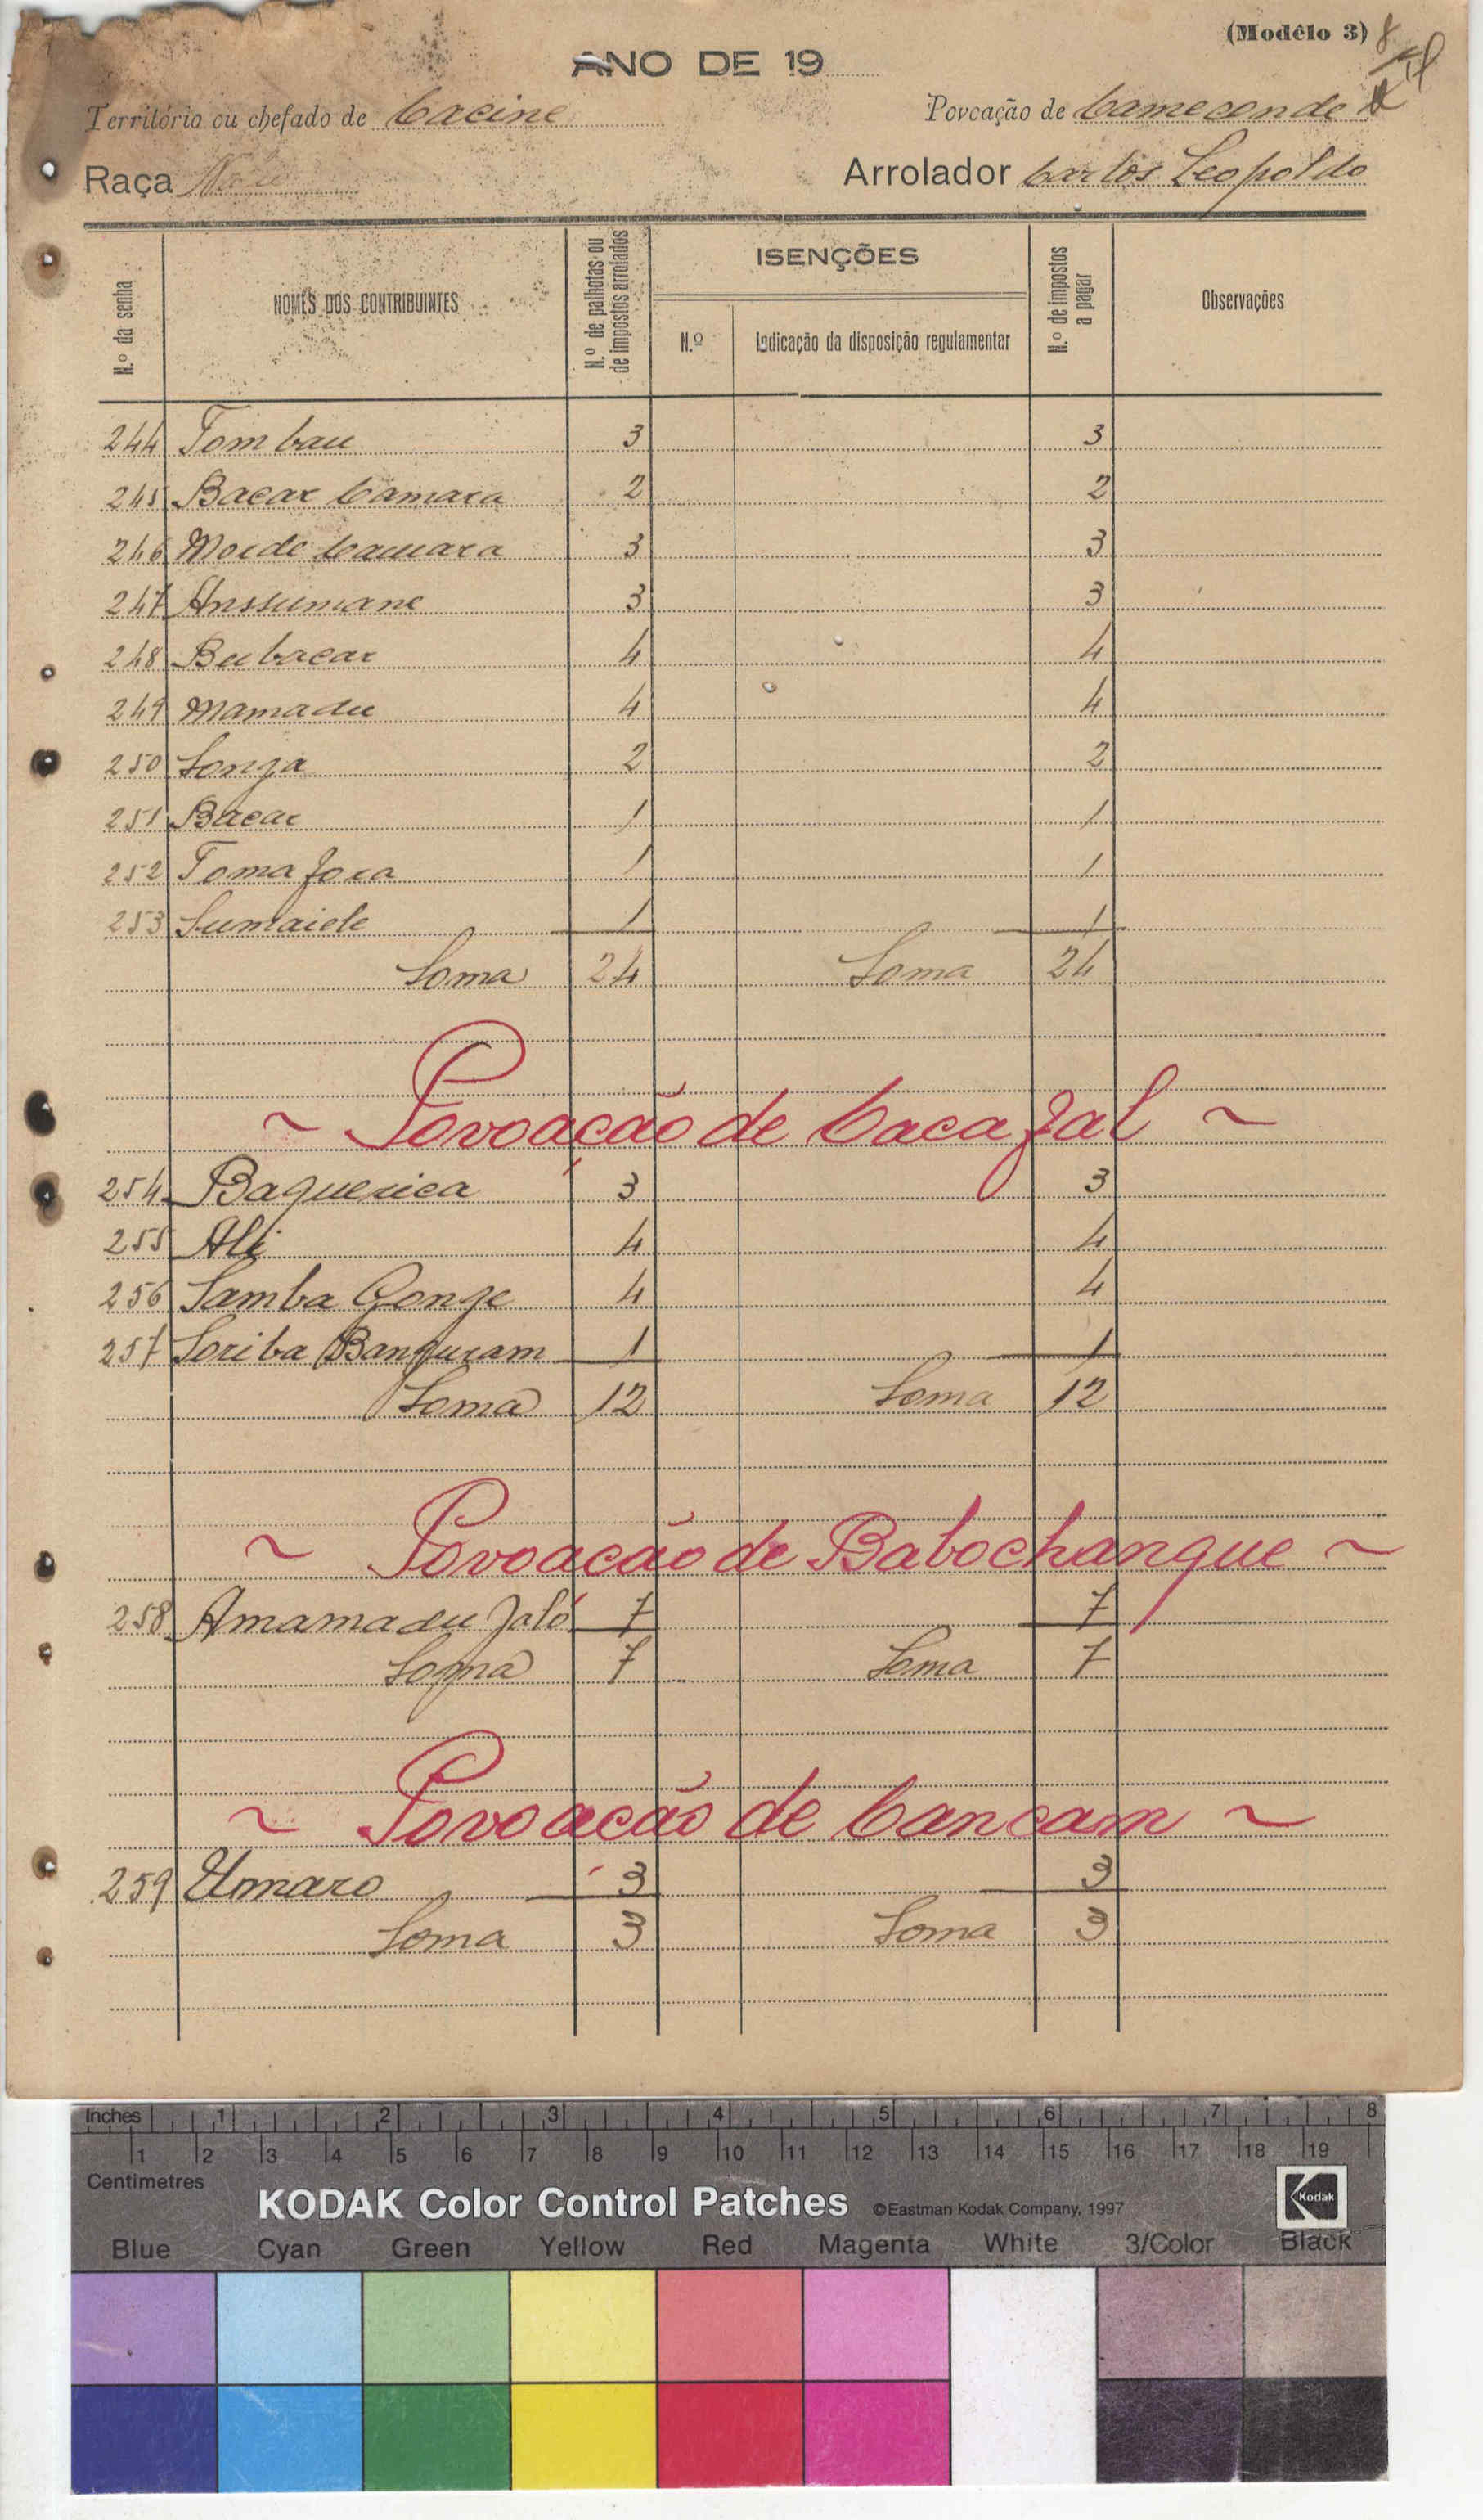 (Modêlo 3) 8
ANO DE 19
Território ou chefado de Cacine Povoação de Cameconde
Raça Nalú Arrolador Carlos Leopoldo
N.º da senha NOMES DOS CONTRIBUINTES N.º de palhotas ou de impostos arrolados ISENÇÕES N.º Indicação da disposição regulamentar N.º de impostos a pagar Observações
244 Tom bau 3 3
245 Bacar Camara 2 2
246 Morde Camara 3 3
247 Anssumane 3 3
248 Bubacar 4 4
249 Mamadu 4 4
250 Songa 2 2
251 Bacar 1 1
252 Toma Jora 1 1
253 Sumaiele 1 1
Soma 24 Soma 24
~ Povoação de Caca Jal ~
254 Baquerica 3 3
255 Ali 4 4
256 Samba Gonge 4 4
257 Soriba Banguram 1 1
Soma 12 Soma 12
~ Povoação de Babochanque ~
258 Amamadu Jaló 7 7
Soma 7 Soma 7
~ Povoação de Cancam ~
259 Umaro 3 3
Soma 3 Soma 3
Inches 1 2 3 4 5 6 7 8
1 2 3 4 5 6 7 8 9 10 11 12 13 14 15 16 17 18 19
Centimetres
KODAK Color Control Patches ©Eastman Kodak Company, 1997 Kodak
Blue Cyan Green Yellow Red Magenta White 3/Color Black